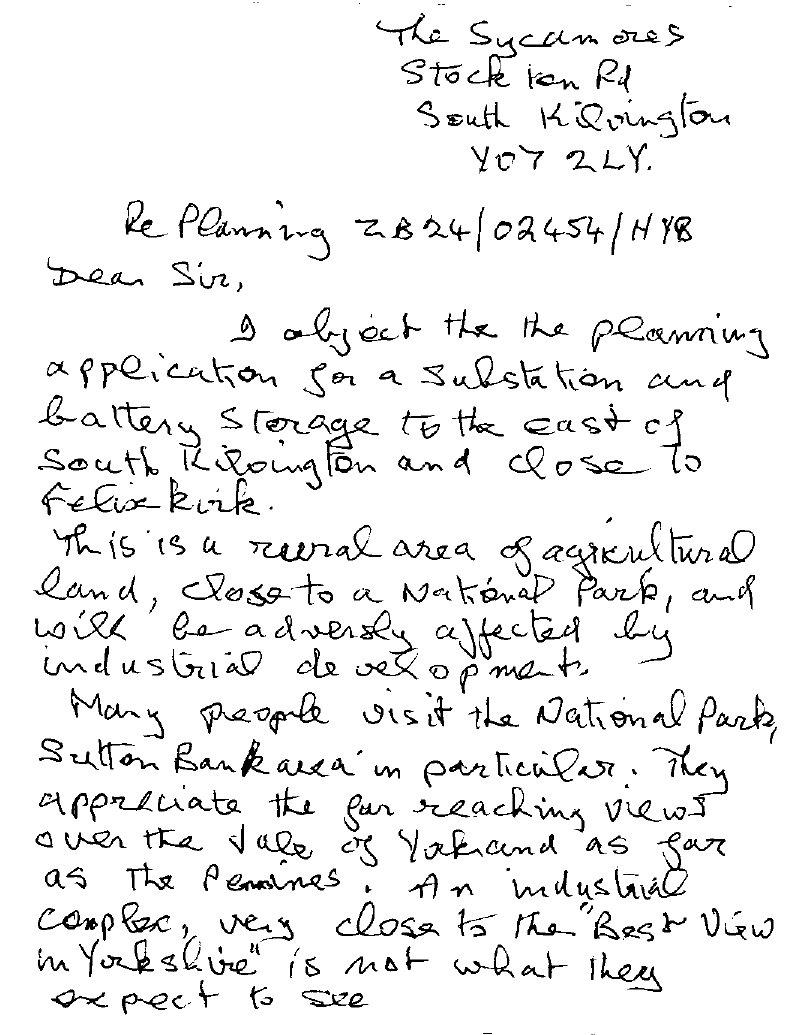 The Sycamores
Stockton Rd
South Kilvington
YO7 2LY.
Re Planning ZB24/02454/HYB
Dear Sir,
I object the the planning
application for a substation and
battery storage to the east of
South Kilvington and close to
Felixkirk.
This is a rural area of agricultural
land, close to a National Park, and
will be adversly affected by
industrial development.
Many people visit the National Park,
Sutton Bank area in particular. They
appreciate the far reaching views
over the Vale of York and as far
as the Pennines. An industrial
complex, very close to the "Best View
in Yorkshire" is not what they
expect to see